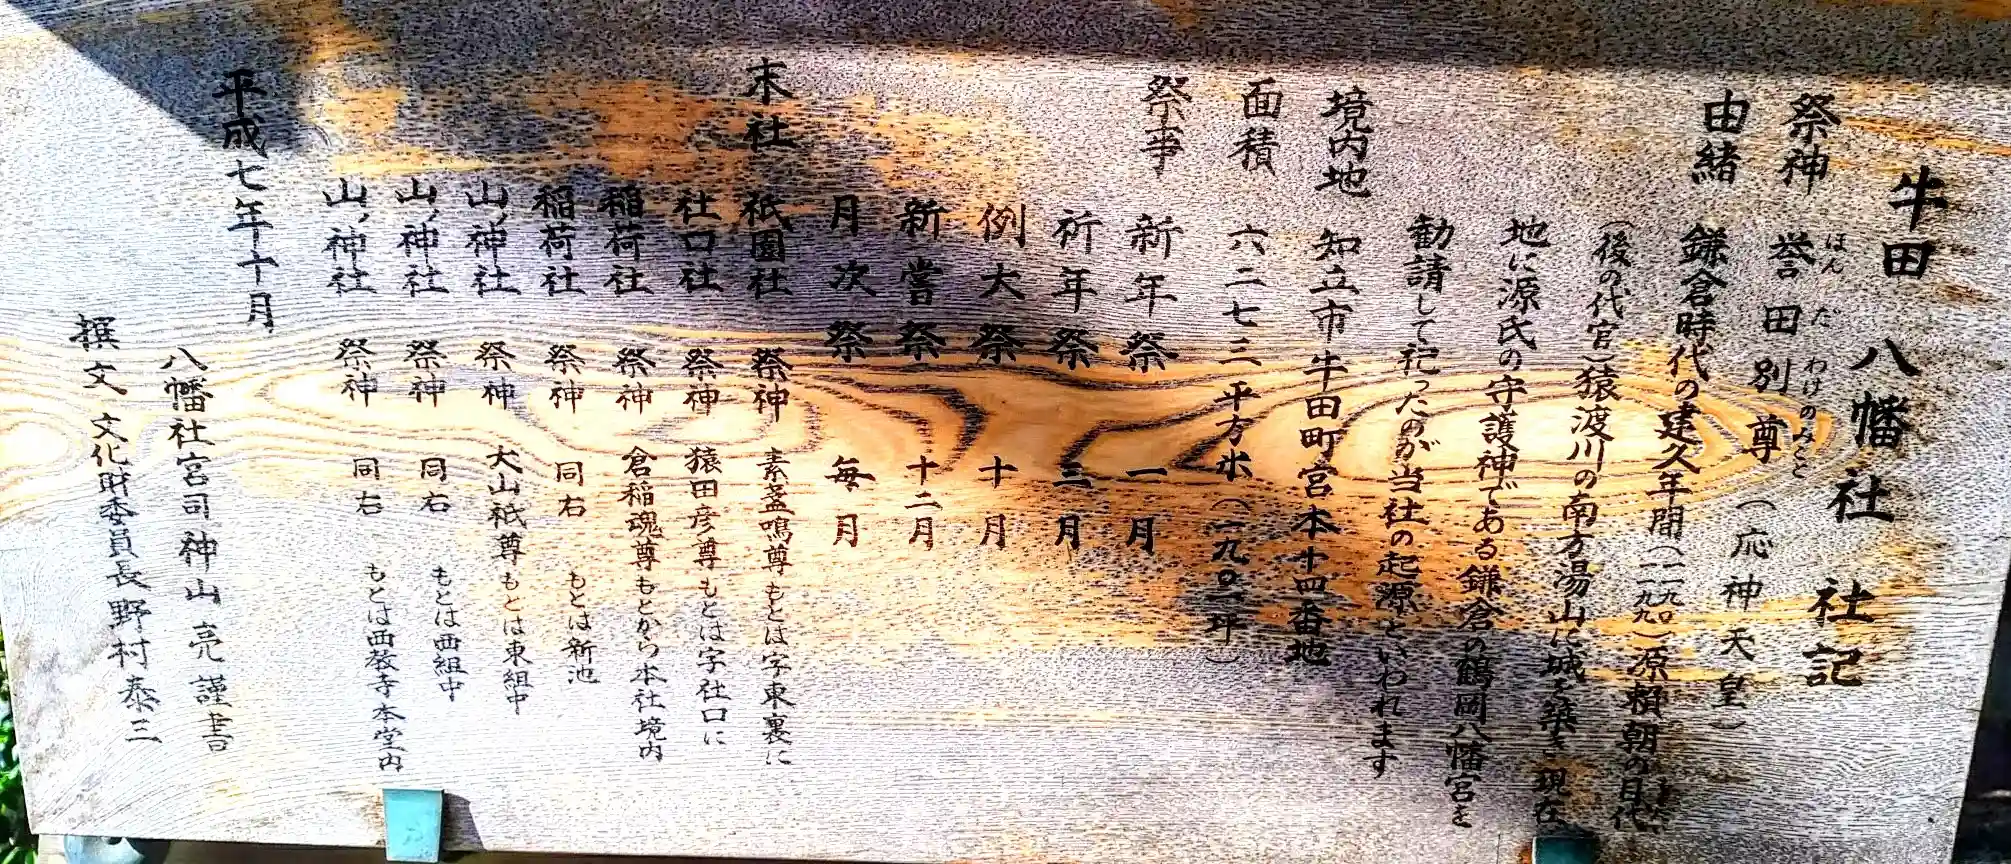 牛田八幡社 社記
祭神 誉田別尊（応神天皇）
ほんだわけのみこと
由緒 鎌倉時代の建久年間（一一九〇
一一九九）源頼朝の目代
（後の代官）猿渡川の南方湯山に城を築き現在
地に源氏の守護神である鎌倉の鶴岡八幡宮を
勧請して祀ったのが当社の起源といわれます
境内地 知立市牛田町宮本十四番地
面積 六二七三平方米（一九〇一坪）
祭事 新年祭 一月
祈年祭 三月
例大祭 十月
新嘗祭 十二月
月次祭 毎月
末社 祇園社 祭神 素盞鳴尊 もとは字東裏に
社口社 祭神 猿田彦尊 もとは字社口に
稲荷社 祭神 倉稲魂尊 もとから本社境内
稲荷社 祭神 同右 もとは新池
山ノ神社 祭神 大山祇尊 もとは東組中
山ノ神社 祭神 同右 もとは西組中
山ノ神社 祭神 同右 もとは西教寺本堂内
平成七年十月
八幡社宮司 神山亮 謹書
撰文 文化財委員長 野村泰三